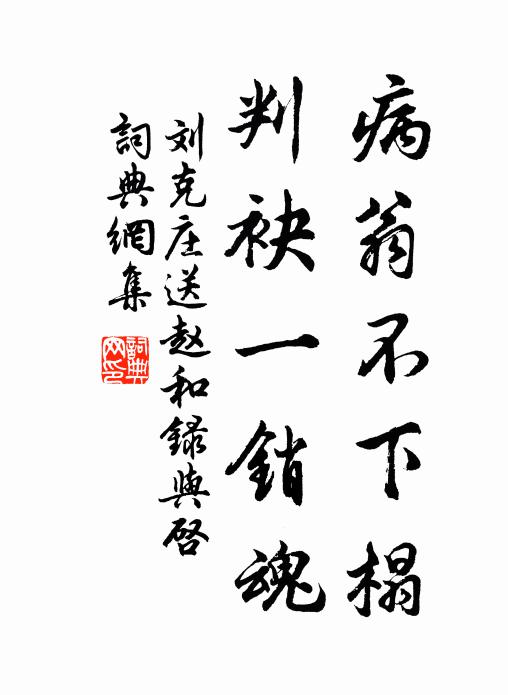 病翁不下榻
判袂一銷魂
刘克庄送赵和錄與啓
詞典網集
詞典网印